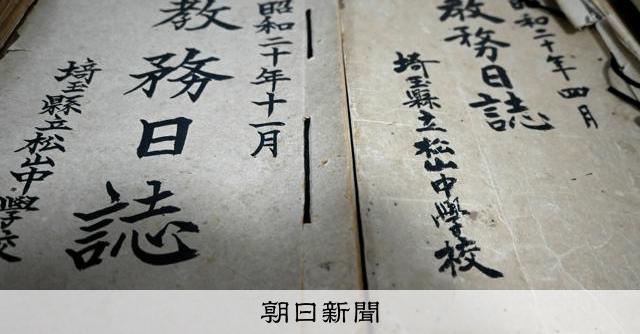 昭和二十年四月
教務日誌
埼玉縣立松山中學校
昭和二十年十一月
教務日誌
埼玉縣立松山中學校
朝日新聞